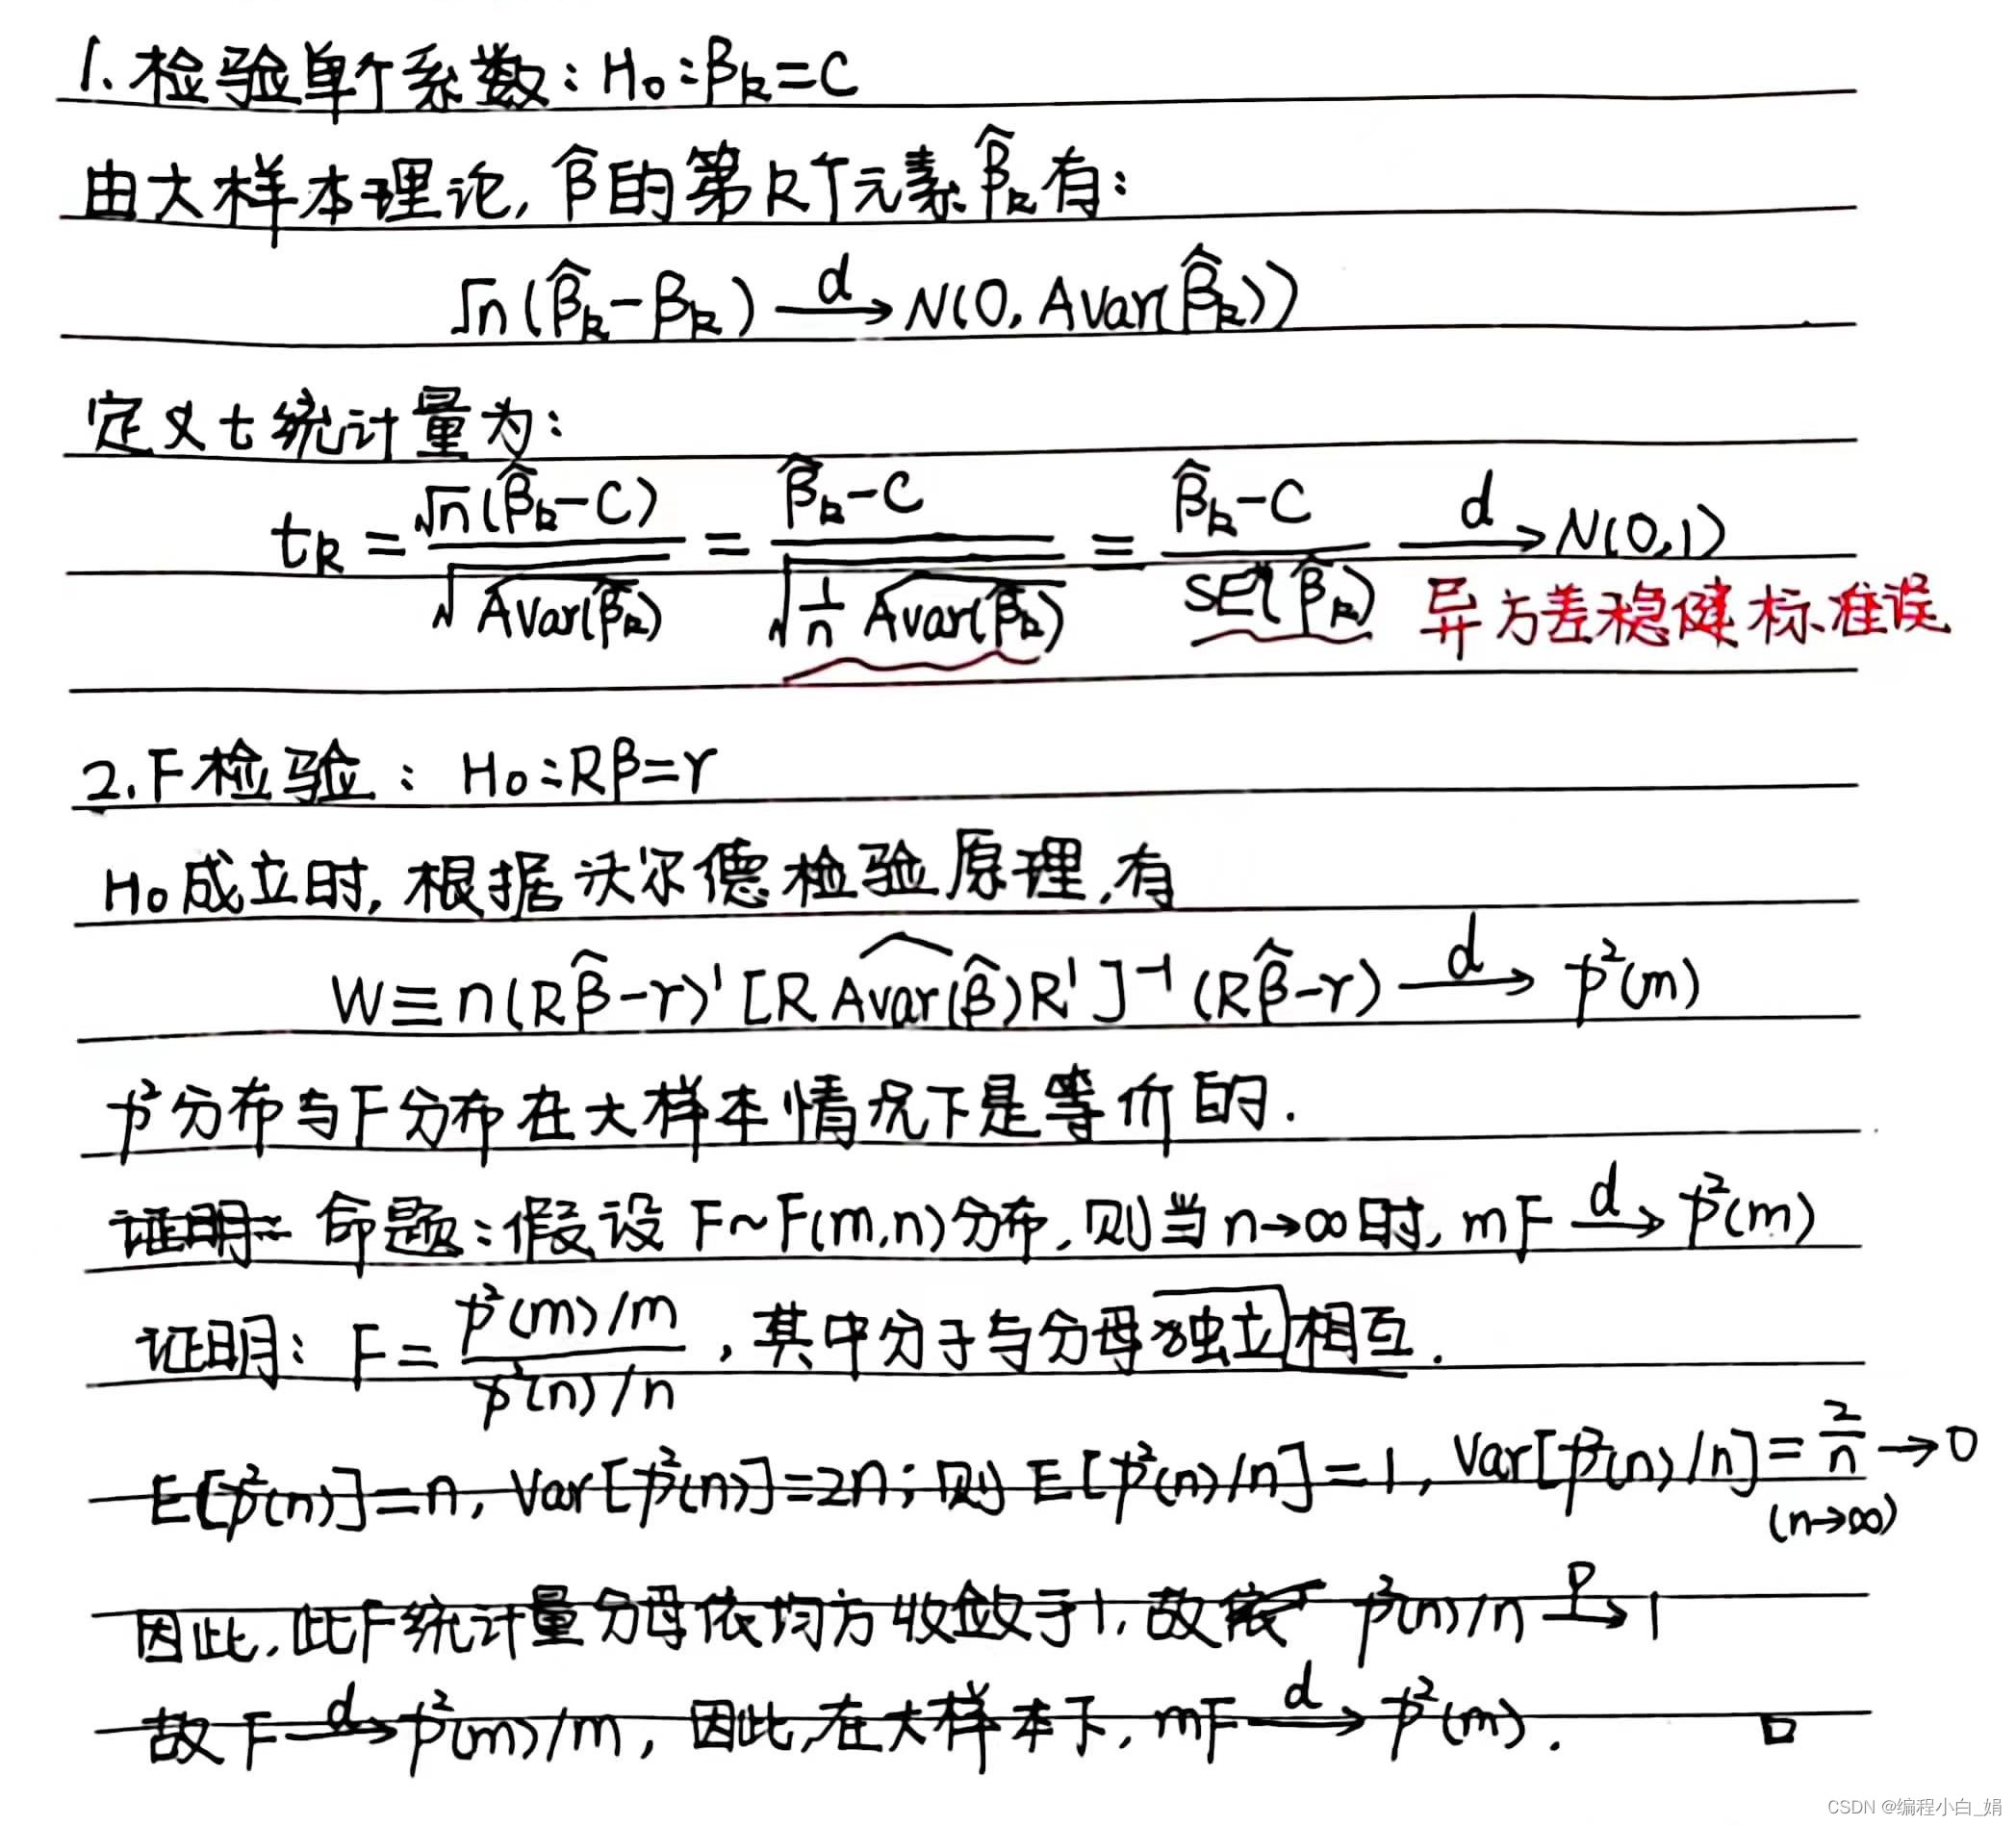 1.检验单个系数：H₀：βₖ=C
由大样本理论，β̂的第k个元素β̂ₖ有：
√n(β̂ₖ-βₖ) —d→ N(0, Avar(β̂ₖ))
定义t统计量为：
tₖ = √n(β̂ₖ-C) / √(Âvar(β̂ₖ)) = (β̂ₖ-C) / √(1/n Âvar(β̂ₖ)) = (β̂ₖ-C) / SE*(β̂ₖ) —d→ N(0,1)
异方差稳健标准误
2.F检验：H₀：Rβ=r
H₀成立时，根据沃尔德检验原理，有
W≡n(Rβ̂-r)'[R Âvar(β̂)R']⁻¹(Rβ̂-r) —d→ χ²(m)
χ²分布与F分布在大样本情况下是等价的.
证明：命题：假设F~F(m,n)分布，则当n→∞时，mF —d→ χ²(m)
证明：F = (χ²(m)/m) / (χ²(n)/n)，其中分子与分母独立相互.
E[χ²(n)]=n, Var[χ²(n)]=2n；则E[χ²(n)/n]=1, Var[χ²(n)/n]=2/n→0
(n→∞)
因此，此F统计量分母依均方收敛于1，故 χ²(n)/n —p→ 1
故F —d→ χ²(m)/m，因此，在大样本下，mF —d→ χ²(m). □
CSDN @编程小白_娟